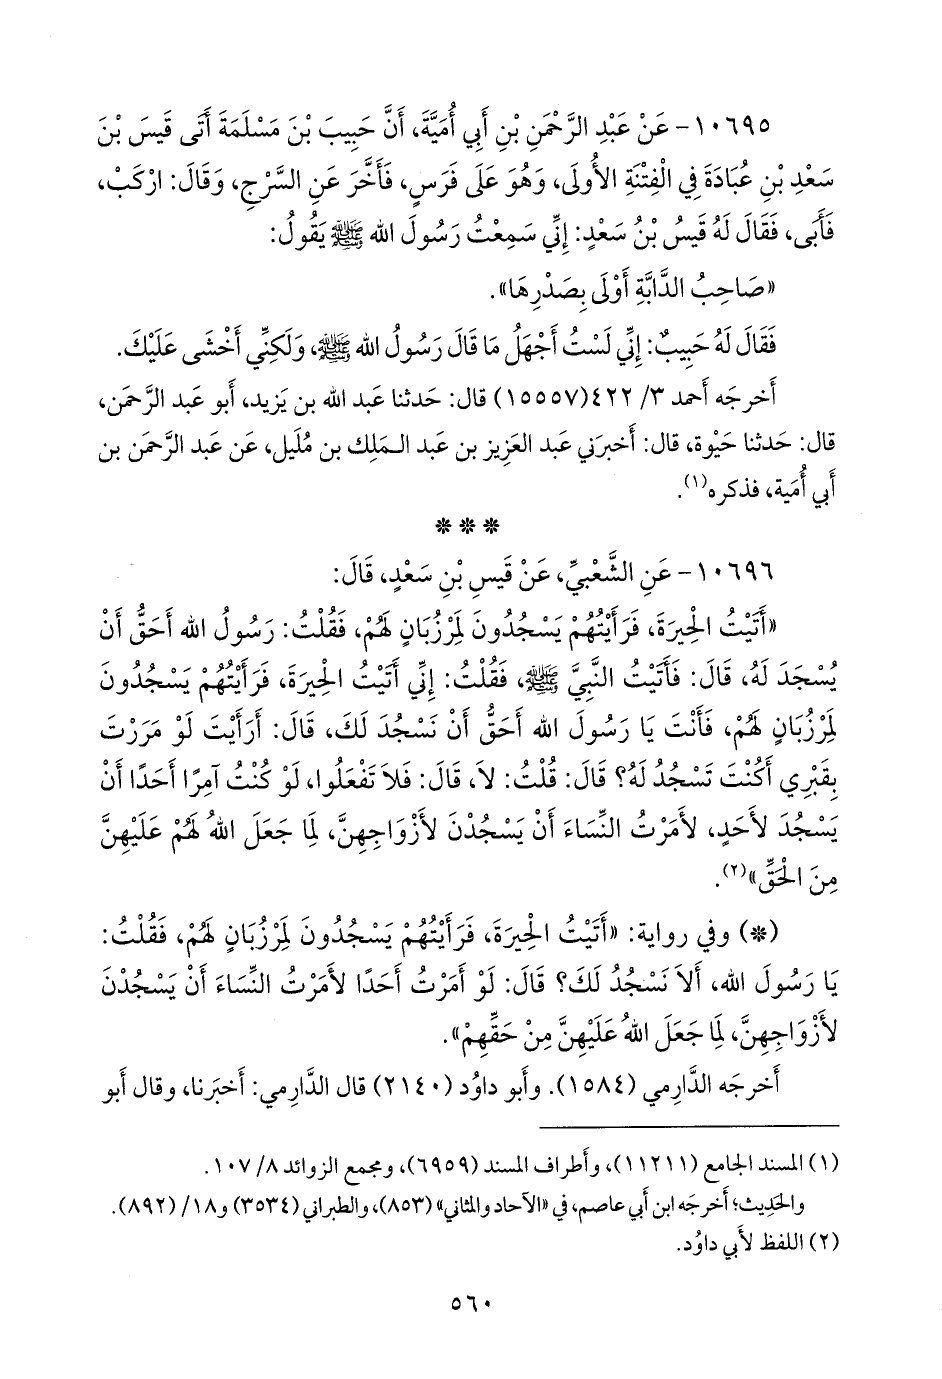 ١٠٦٩٥- عَنْ عَبْدِ الرَّحْمَنِ بْنِ أَبِي أُمَيَّةَ، أَنَّ حَبِيبَ بْنَ مَسْلَمَةَ أَتَى قَيسَ بْنَ
سَعْدِ بْنِ عُبَادَةَ فِي الْفِتْنَةِ الأُولَى، وَهُوَ عَلَى فَرَسٍ، فَأَخَّرَ عَنِ السَّرْجِ، وَقَالَ: ارْكَبْ،
فَأَبَى، فَقَالَ لَهُ قَيسُ بْنُ سَعْدٍ: إِنِّي سَمِعْتُ رَسُولَ الله ﷺ يَقُولُ:
«صَاحِبُ الدَّابَّةِ أَوْلَى بِصَدْرِهَا».
فَقَالَ لَهُ حَبِيبٌ: إِنِّي لَسْتُ أَجْهَلُ مَا قَالَ رَسُولُ الله ﷺ، وَلَكِنِّي أَخْشَى عَلَيْكَ.
أَخرجَه أَحمد ٣/ ٤٢٢(١٥٥٥٧) قال: حَدثنا عَبد الله بن يَزيد، أَبو عَبد الرَّحمَن،
قال: حَدثنا حَيْوة، قال: أَخبرَني عَبد العَزِيز بن عَبد الـمَلِك بن مُلَيل، عَن عَبد الرَّحمن بن
أَبي أُمَية، فذكره(١).
***
١٠٦٩٦- عَنِ الشَّعْبِيِّ، عَنْ قَيسِ بْنِ سَعْدٍ، قَالَ:
«أَتَيْتُ الْحِيرَةَ، فَرَأَيْتُهُمْ يَسْجُدُونَ لِمَرْزُبَانٍ لَهُمْ، فَقُلْتُ: رَسُولُ الله أَحَقُّ أَنْ
يُسْجَدَ لَهُ، قَالَ: فَأَتَيْتُ النَّبِيَّ ﷺ، فَقُلْتُ: إِنِّي أَتَيْتُ الْحِيرَةَ، فَرَأَيْتُهُمْ يَسْجُدُونَ
لِمَرْزُبَانٍ لَهُمْ، فَأَنْتَ يَا رَسُولَ الله أَحَقُّ أَنْ نَسْجُدَ لَكَ، قَالَ: أَرَأَيْتَ لَوْ مَرَرْتَ
بِقَبْرِي أَكُنْتَ تَسْجُدُ لَهُ؟ قَالَ: قُلْتُ: لاَ، قَالَ: فَلاَ تَفْعَلُوا، لَوْ كُنْتُ آمِرًا أَحَدًا أَنْ
يَسْجُدَ لأَحَدٍ، لأَمَرْتُ النِّسَاءَ أَنْ يَسْجُدْنَ لأَزْوَاجِهِنَّ، لِمَا جَعَلَ اللهُ لَهُمْ عَلَيْهِنَّ
مِنَ الْحَقِّ»(٢).
(*) وفي رواية: «أَتَيْتُ الْحِيرَةَ، فَرَأَيْتُهُمْ يَسْجُدُونَ لِمَرْزُبَانٍ لَهُمْ، فَقُلْتُ:
يَا رَسُولَ الله، أَلاَ نَسْجُدُ لَكَ؟ قَالَ: لَوْ أَمَرْتُ أَحَدًا لأَمَرْتُ النِّسَاءَ أَنْ يَسْجُدْنَ
لأَزْوَاجِهِنَّ، لِمَا جَعَلَ اللهُ عَلَيْهِنَّ مِنْ حَقِّهِمْ».
أَخرجَه الدَّارِمي (١٥٨٤). وأَبو داوُد (٢١٤٠) قال الدَّارِمي: أَخبَرنا، وقال أَبو
(١) المسند الجامع (١١٢١١)، وأَطراف المسند (٦٩٥٩)، ومجمع الزوائد ٨/ ١٠٧.
والحَدِيث؛ أَخرجَه ابن أَبي عاصم، في «الآحاد والمَثاني» (٨٥٣)، والطبراني (٣٥٣٤) و١٨/ (٨٩٢).
(٢) اللفظ لأَبي داوُد.
٥٦٠